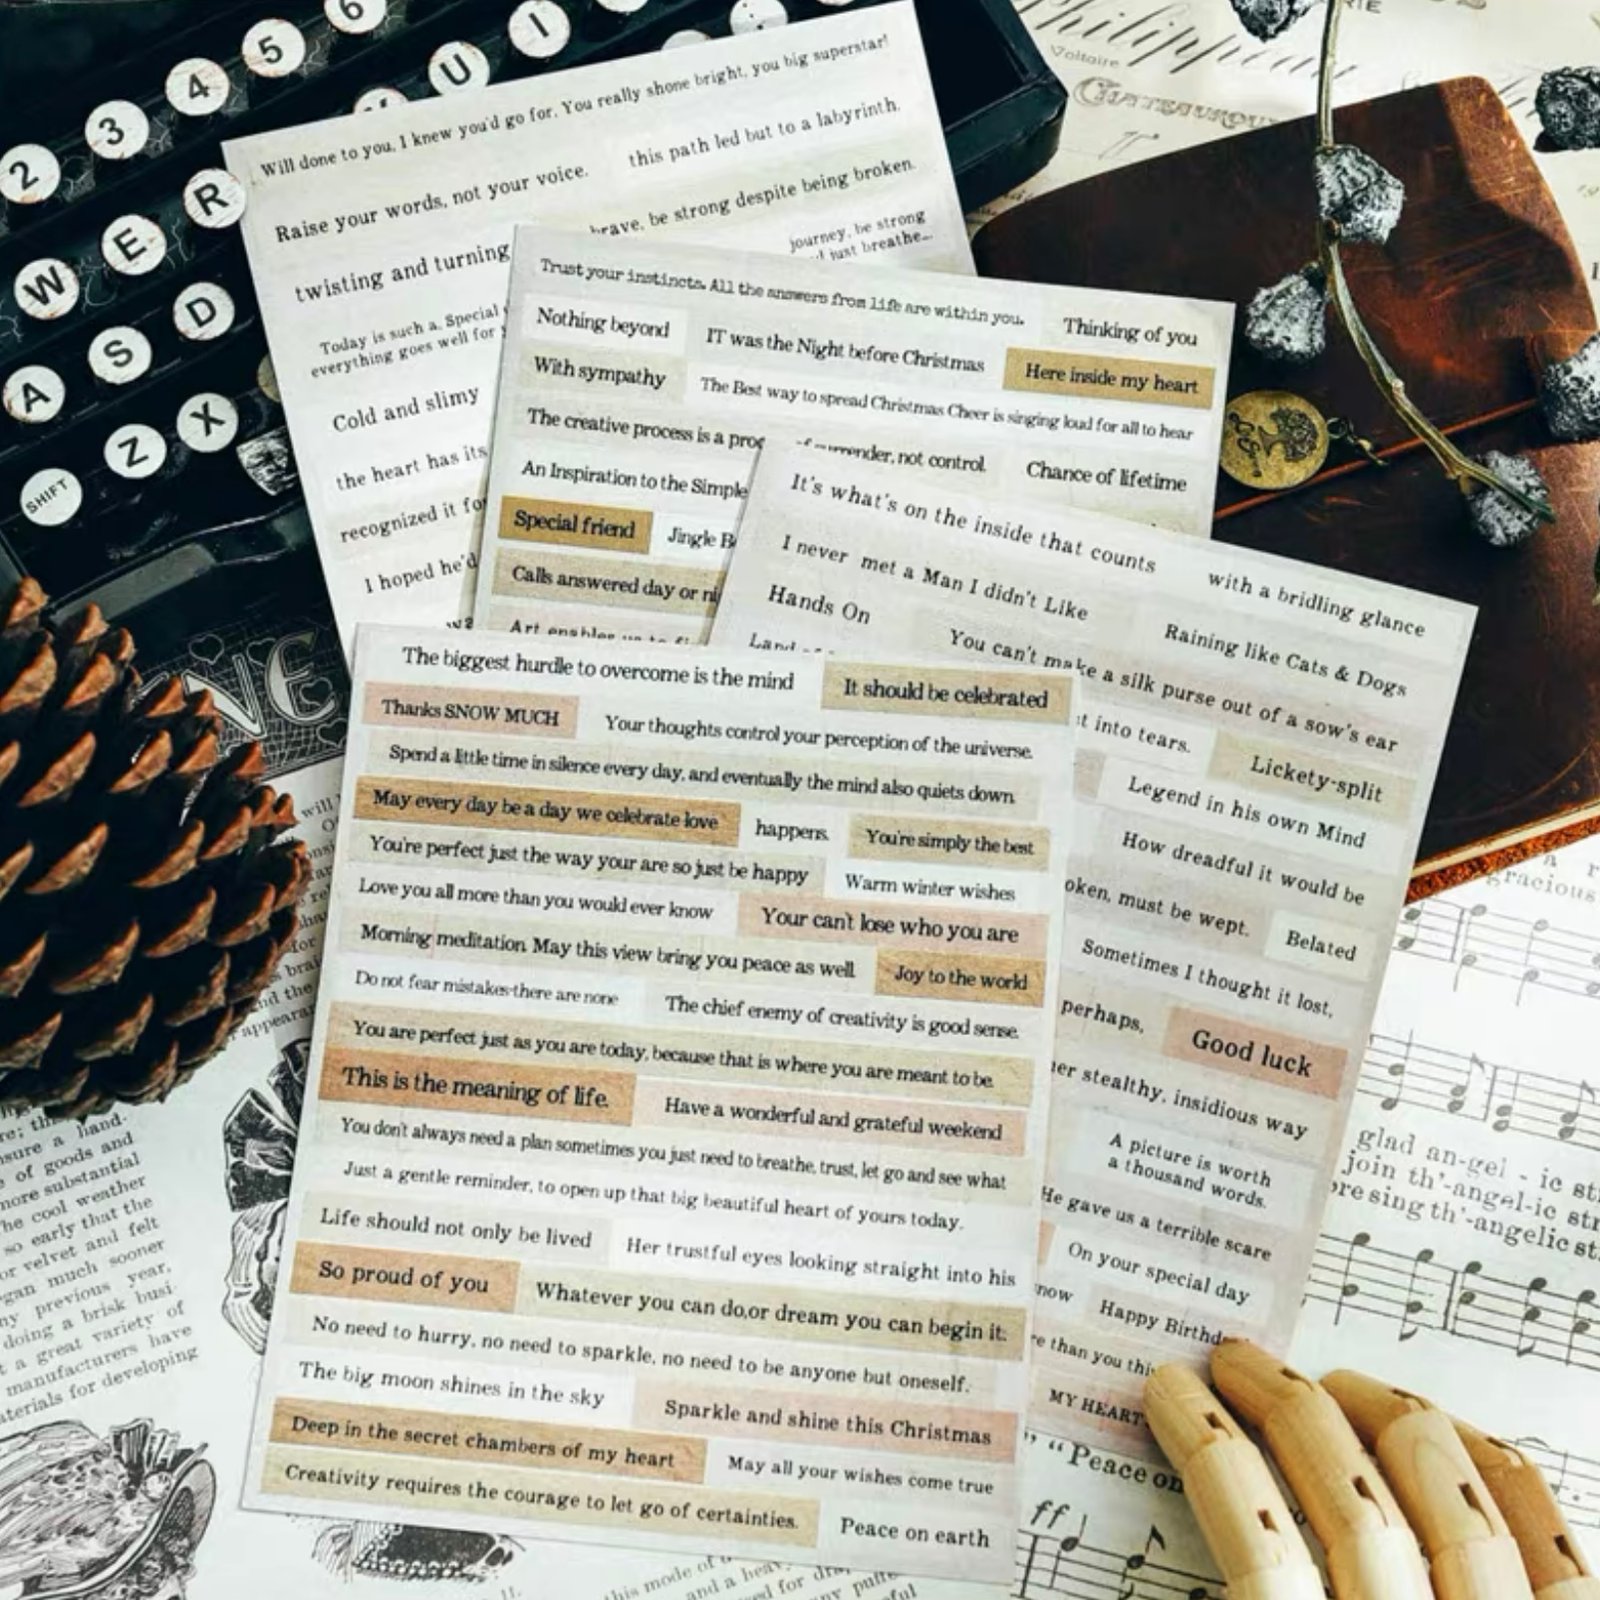 2 3 4 5 6
W E R U I
A S D
SHIFT Z X
Philippeau
Voltaire
CHATEAUROUX
Will done to you, I knew you'd go for, You really shone bright, you big superstar!
Raise your words, not your voice.
this path led but to a labyrinth.
twisting and turning
brave, be strong despite being broken.
journey, be strong
just breathe...
Today is such a. Special
everything goes well for
Cold and slimy
the heart has its
recognized it fo
I hoped he'd
Trust your instincts. All the answers from life are within you.
Thinking of you
Nothing beyond
IT was the Night before Christmas
Here inside my heart
With sympathy
The Best way to spread Christmas Cheer is singing loud for all to hear
The creative process is a proc
of surrender, not control.
Chance of lifetime
An Inspiration to the Simple
Special friend
Jingle B
Calls answered day or ni
Art enables us to fi
It's what's on the inside that counts
with a bridling glance
I never met a Man I didn't Like
Hands On
Raining like Cats & Dogs
Land
You can't make a silk purse out of a sow's ear
t into tears.
Lickety-split
Legend in his own Mind
How dreadful it would be
oken, must be wept.
Belated
Sometimes I thought it lost,
perhaps,
Good luck
er stealthy, insidious way
A picture is worth
a thousand words.
He gave us a terrible scare
On your special day
now
Happy Birthd
re than you thi
MY HEART
The biggest hurdle to overcome is the mind
It should be celebrated
Thanks SNOW MUCH
Your thoughts control your perception of the universe.
Spend a little time in silence every day, and eventually the mind also quiets down.
May every day be a day we celebrate love
happens.
You're simply the best
You're perfect just the way your are so just be happy
Warm winter wishes
Love you all more than you would ever know
Your can't lose who you are
Morning meditation. May this view bring you peace as well.
Joy to the world
Do not fear mistakes-there are none
The chief enemy of creativity is good sense.
You are perfect just as you are today, because that is where you are meant to be.
This is the meaning of life.
Have a wonderful and grateful weekend
You don't always need a plan sometimes you just need to breathe, trust, let go and see what
Just a gentle reminder, to open up that big beautiful heart of yours today.
Life should not only be lived
Her trustful eyes looking straight into his
So proud of you
Whatever you can do,or dream you can begin it:
No need to hurry, no need to sparkle, no need to be anyone but oneself.
The big moon shines in the sky
Sparkle and shine this Christmas
Deep in the secret chambers of my heart
May all your wishes come true
Creativity requires the courage to let go of certainties.
Peace on earth
gracious
glad an-gel - ic st
join th'-angel-ic str
ore sing th'-angelic st
" "Peace on
ff
will
appeara
sure a hand-
e of goods and
more substantial
he cool weather
so early that the
or velvet and felt
gan much sooner
ny previous year,
doing a brisk busi-
t a great variety of
manufacturers have
aterials for developing
this mode of
and a heav